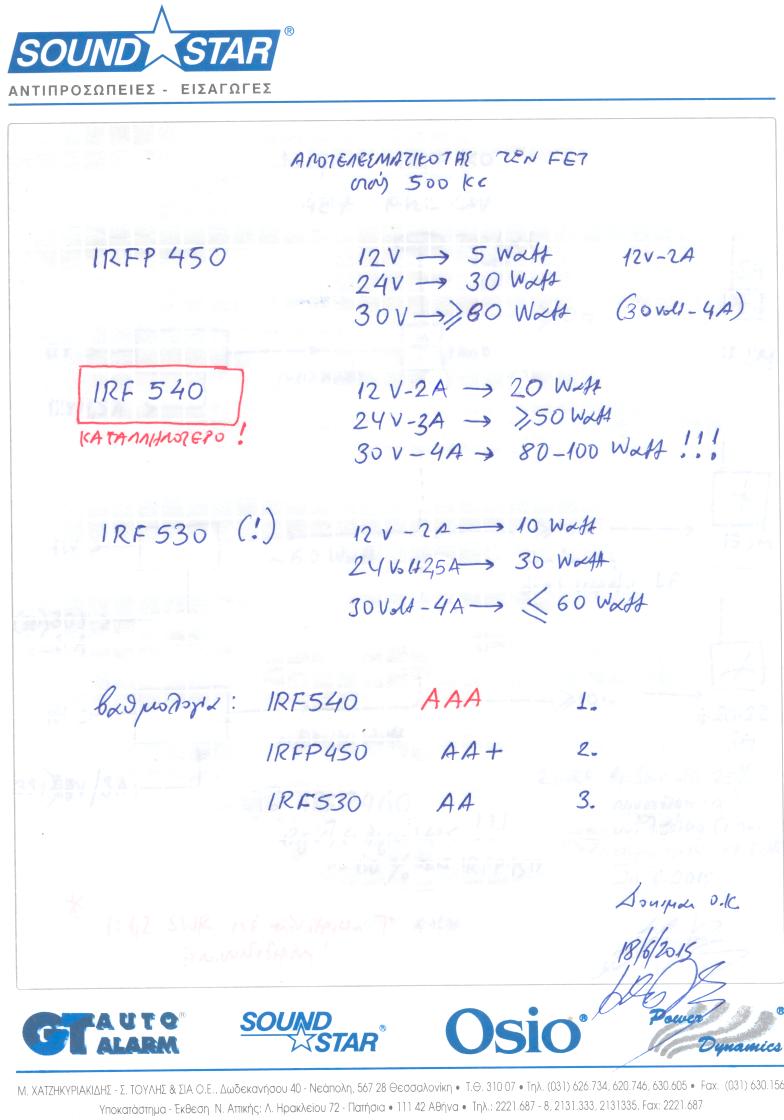 SOUND STAR®
ΑΝΤΙΠΡΟΣΩΠΕΙΕΣ - ΕΙΣΑΓΩΓΕΣ
ΑΠΟΤΕΛΕΣΜΑΤΙΚΟΤΗΣ ΤΩΝ FET
στούς 500 Kc
IRFP 450 12V → 5 Watt 12V-2A
24V → 30 Watt
30V → ≥60 Watt (30Volt-4A)
IRF 540 12V-2A → 20 Watt
ΚΑΤΑΛΛΗΛΟΤΕΡΟ! 24V-3A → ≥50 Watt
30V-4A → 80-100 Watt !!!
IRF530 (!) 12V-2A → 10 Watt
24Volt 2,5A → 30 Watt
30Volt-4A → ≤ 60 Watt
βαθμολογία: IRF540 AAA 1.
IRFP450 AA+ 2.
IRF530 AA 3.
Δοκιμαι O.K.
18/6/2015
GT AUTO ALARM® SOUND STAR® Osio® Power Dynamics®
Μ. ΧΑΤΖΗΚΥΡΙΑΚΙΔΗΣ - Σ. ΤΟΥΛΗΣ & ΣΙΑ Ο.Ε., Δωδεκανήσου 40 - Νεάπολη, 567 28 Θεσσαλονίκη • Τ.Θ. 310 07 • Τηλ. (031) 626.734, 620.746, 630.605 • Fax. (031) 630.156
Υποκατάστημα - Έκθεση Ν. Αττικής: Λ. Ηρακλείου 72 - Πατήσια • 111 42 Αθήνα • Τηλ.: 2221 687 - 8, 2131.333, 2131335, Fax: 2221.687